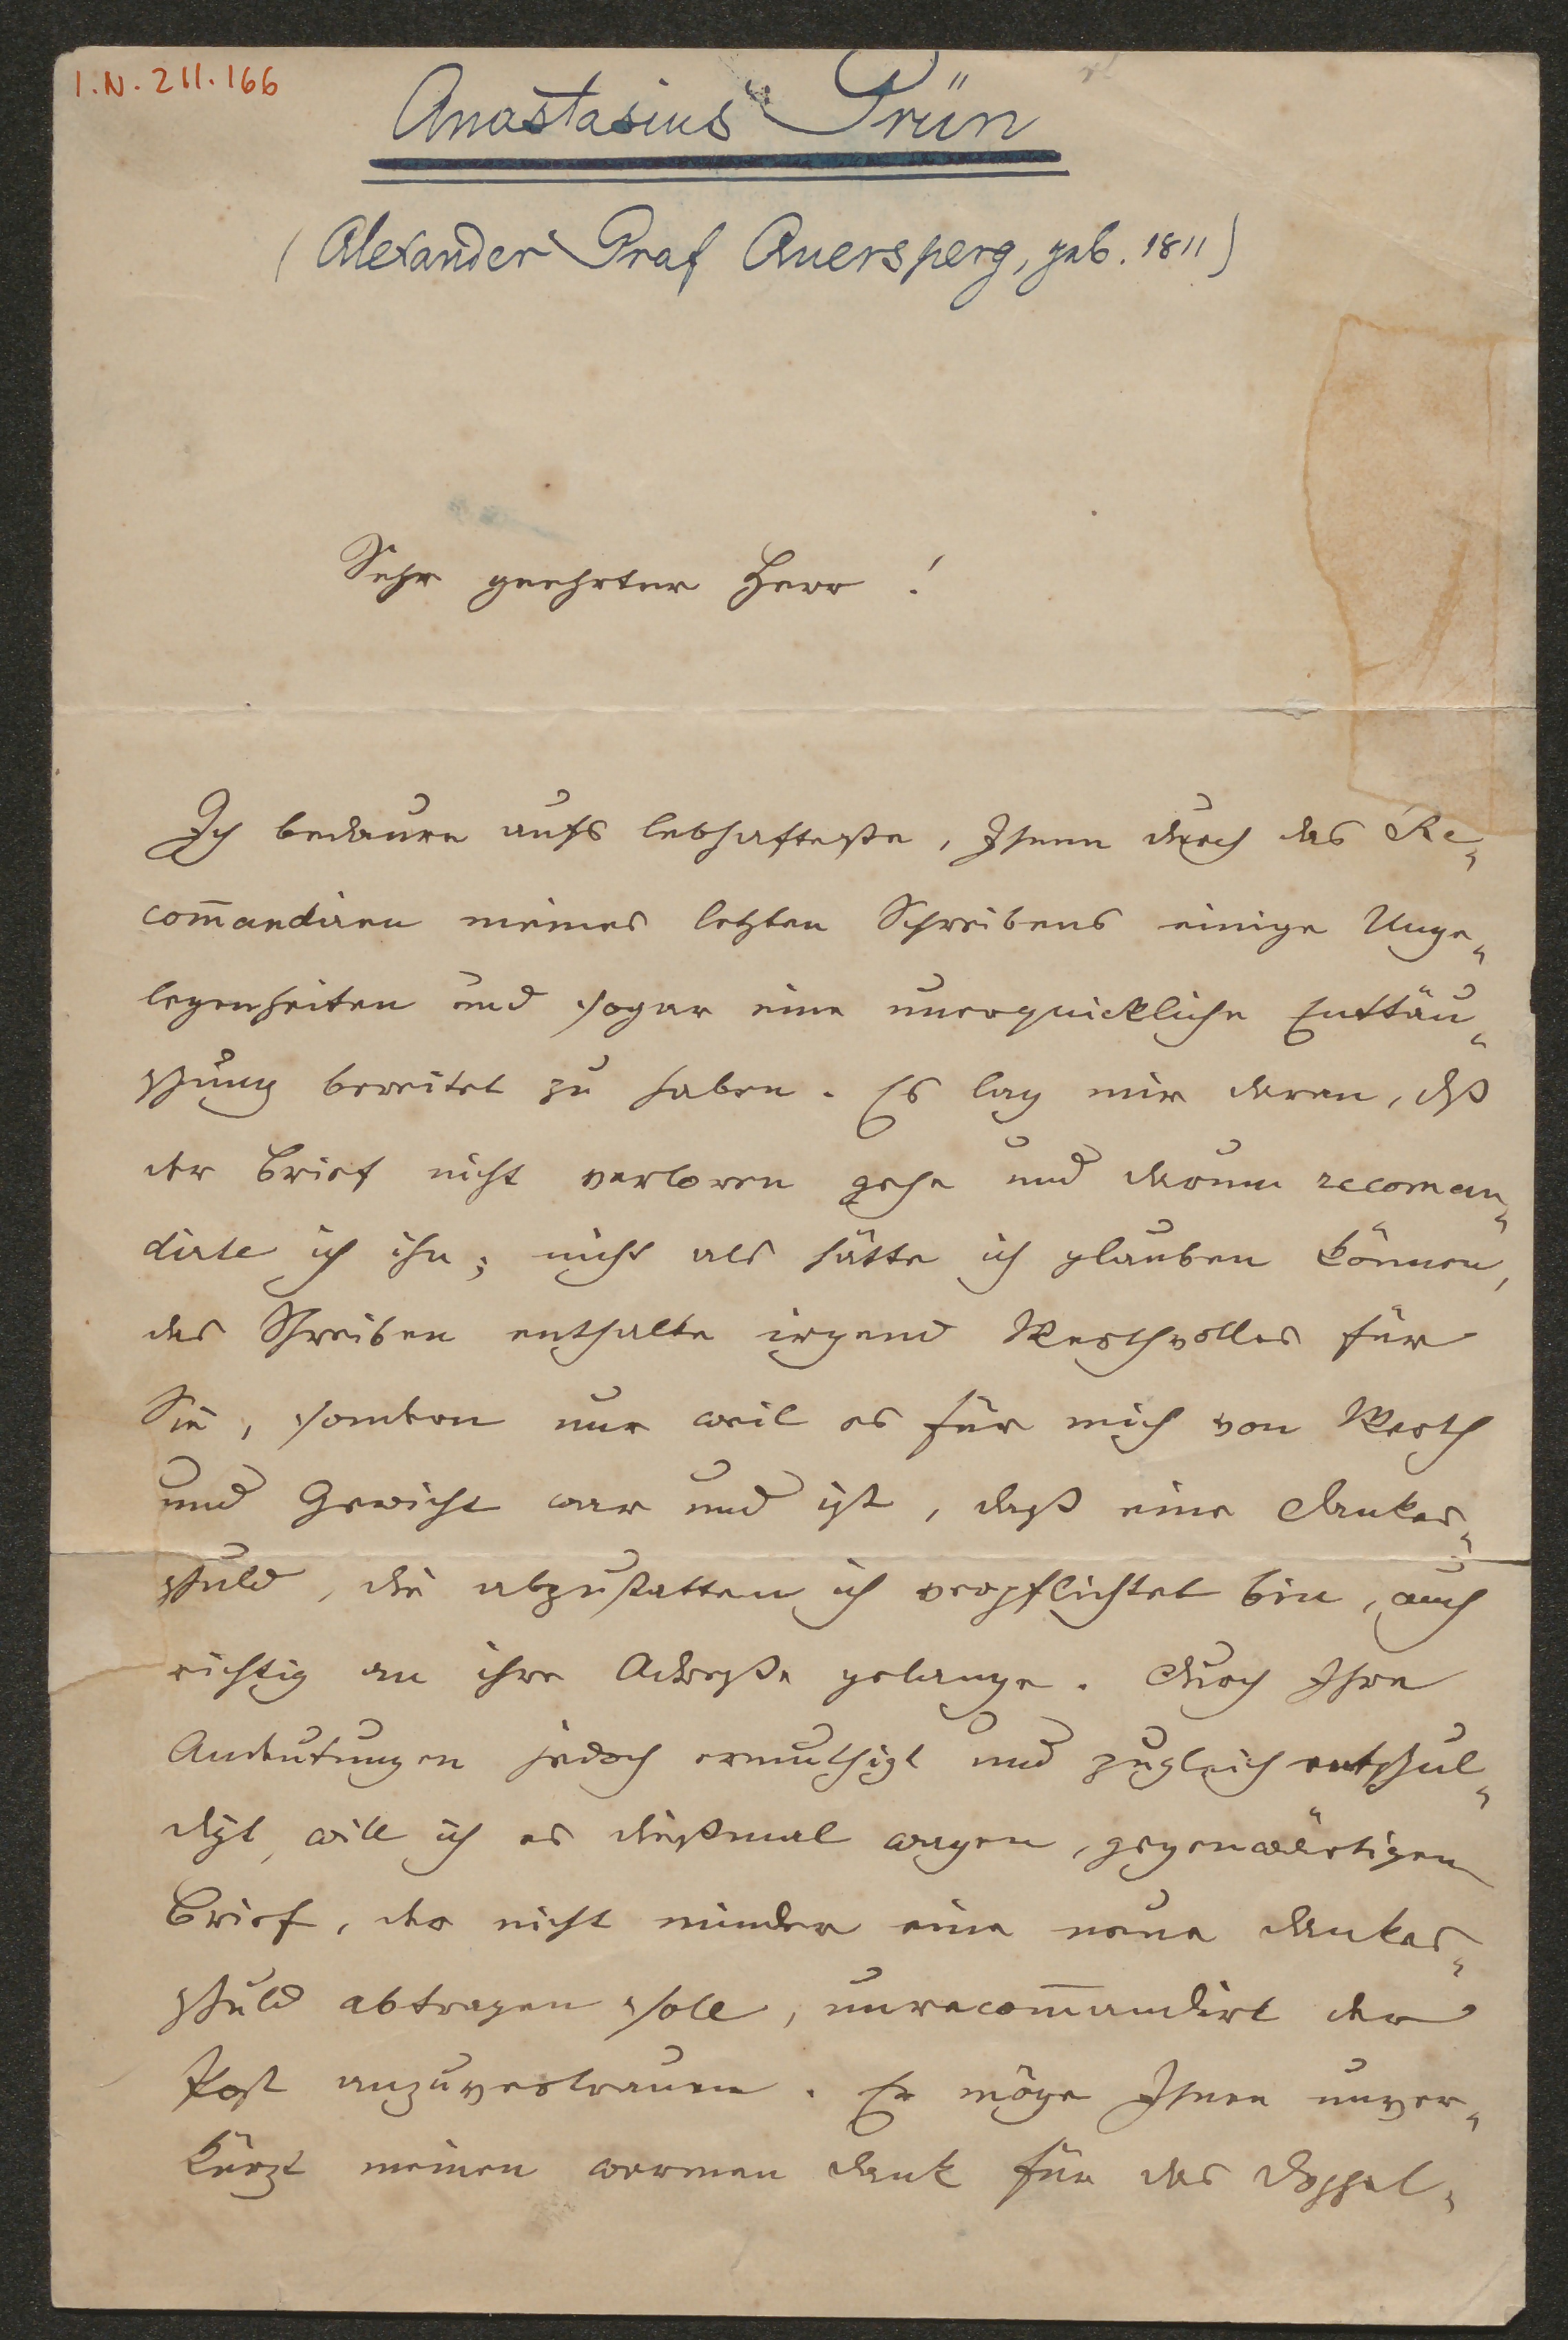 I.N. 211.166
Anastasius Grün
(Alexander Graf Auersperg, geb. 1811)
Sehr geehrter Herr!
Ich bedaure aufs lebhafteste, Ihnen durch das Re„
com̅andiren meines letzten Schreibens einige Unge„
legenheiten und sogar eine unerquickliche Enttäu„
schung bereitet zu haben. Es lag mir daran, dß
der Brief nicht verloren gehe und darum recoman„
dirte ich ihn; nicht als hätte ich glauben können,
das Schreiben enthalte irgend Werthvolles für
Sie, sondern nur weil es für mich von Werth
und Gewicht war und ist, daß eine Dankes„
schuld, die abzustatten ich verpflichtet bin, auch
richtig an ihre Adreße gelange. Durch Ihre
Andeutungen jedoch ermuthigt und zugleich entschul„
digt, will ich es dießmal wagen, gegenwärtigen
Brief, der nicht minder eine neue Dankes„
schuld abtragen soll, unrecom̅andirt der
Post anzuvertrauen. Er möge Ihnen unver„
kürzt meinen warmen Dank für das Doppel„